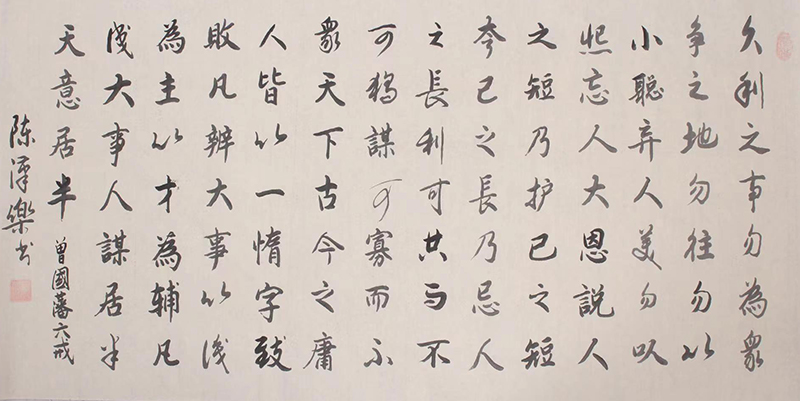 久利之事勿為眾
争之地勿往勿以
小聪弃人美勿以
怨忘人大恩説人
之短乃护己之短
夸己之長乃忌人
之長利可共而不
可獨謀可寡而不
眾天下古今之庸
人皆以一惰字致
敗凡辦大事以識
為主以才為輔凡
成大事人謀居半
天意居半 曾國藩六戒
陈泽樂书